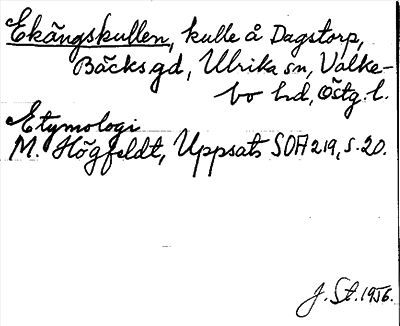 Ekängskullen, kulle å Dagstorp,
Bäcks gd, Ulrika sn, Valke-
bo hd, Östg. l.
Etymologi
M. Högfeldt, Uppsats SOA 219, s. 20.
J. St. 1956.